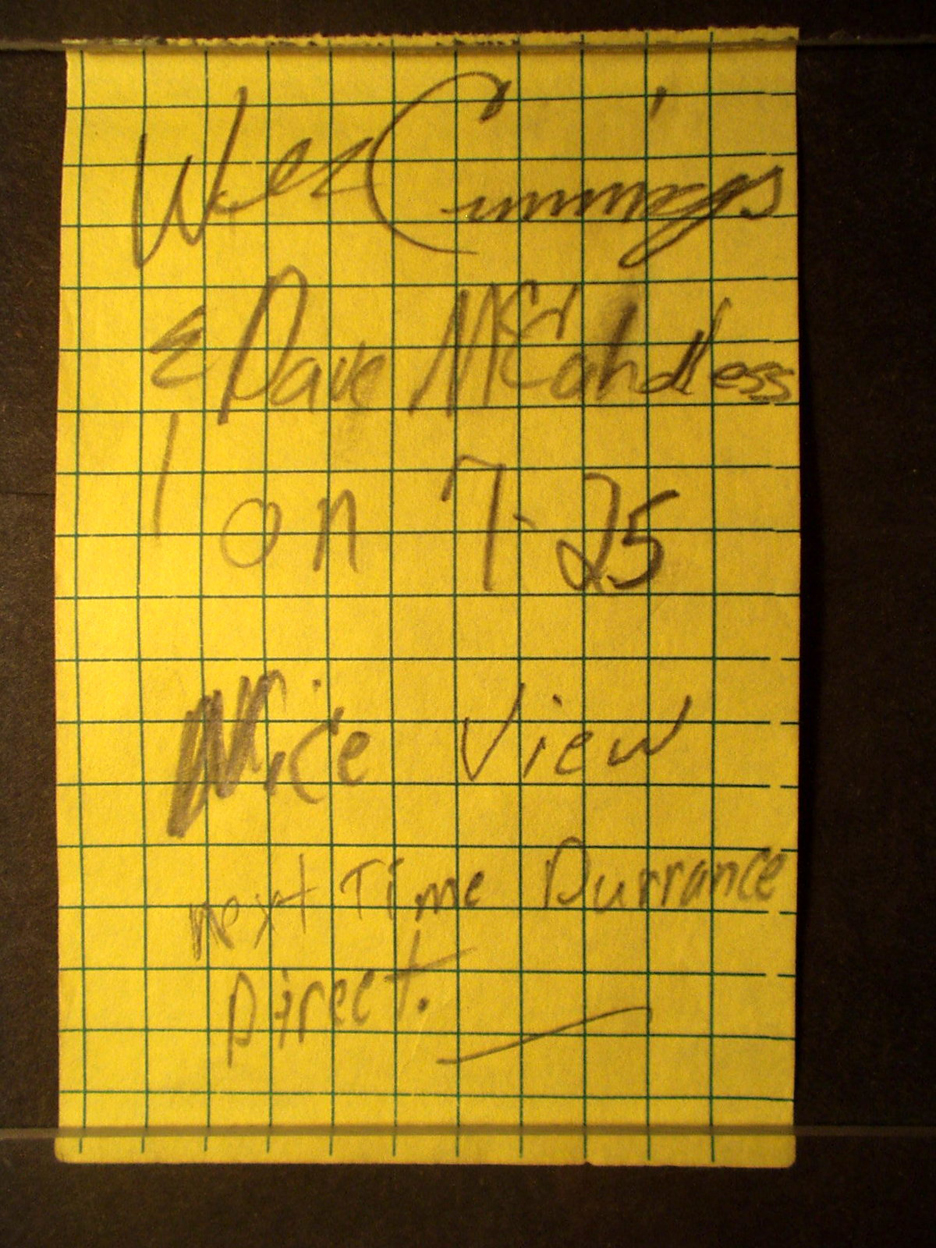 Wes Cummings
& Dave McCandless
on 7-25
Nice View
next Time Durrance
Direct.